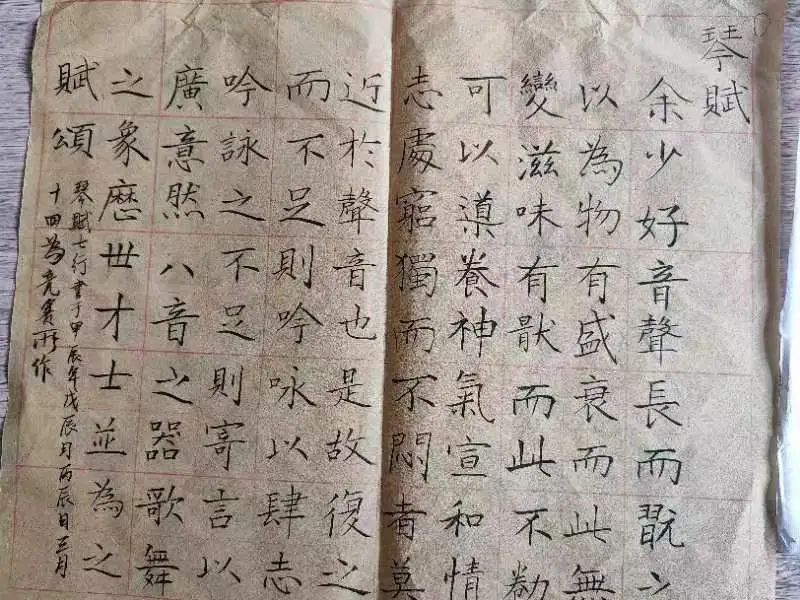 琴賦
余少好音聲長而翫
以為物有盛衰而此無
變滋味有猒而此不勌
可以導養神氣宣和情
志處窮獨而不悶者莫
近於聲音也是故復之
而不足則吟咏以肆志
吟詠之不足則寄言以
廣意然八音之器歌舞
之象歷世才士並為之
賦頌
琴賦七行書于甲辰年戊辰月丙辰日三月
十四為竞赛所作